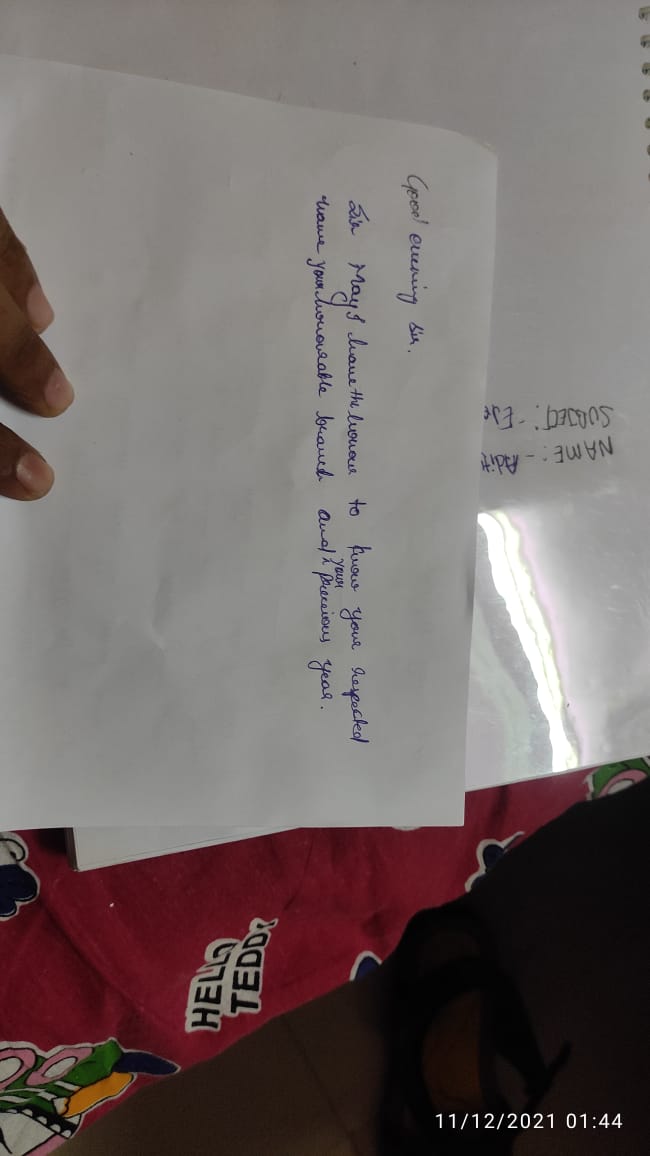 Good evening sir.
Sir May I have the honour to know your respected
name your honourable branch and your precious year.
SUBJECT:- E
NAME:- Adit
HELLO
TEDDY
11/12/2021 01:44